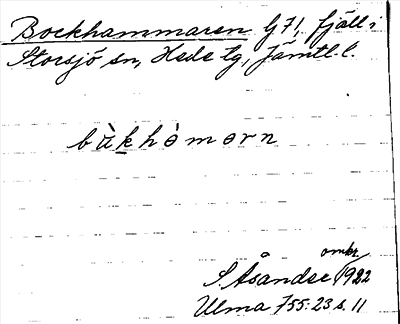 Bockhammaren G 71, fjäll i
Storsjö sn, Hede tg, Jämtl. l.
bàkhòmorn
omkr.
S. Åsander 1922
Ulma 755:23 s. 11